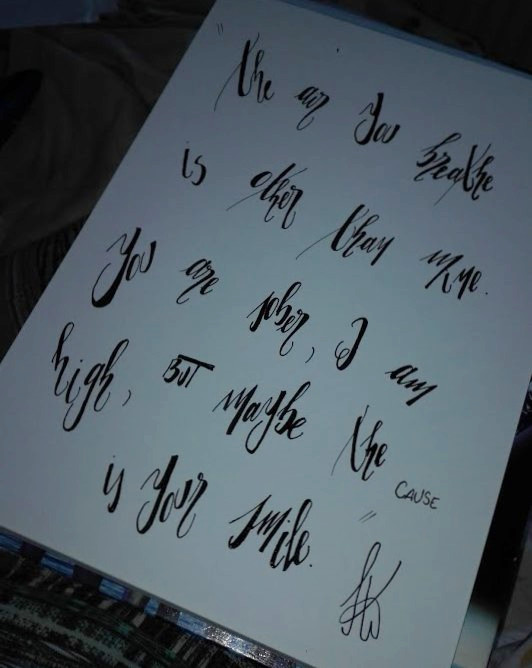 "the air you breathe
is other than mine.
You are sober, I am
high, BUT maybe the
CAUSE
is your smile."